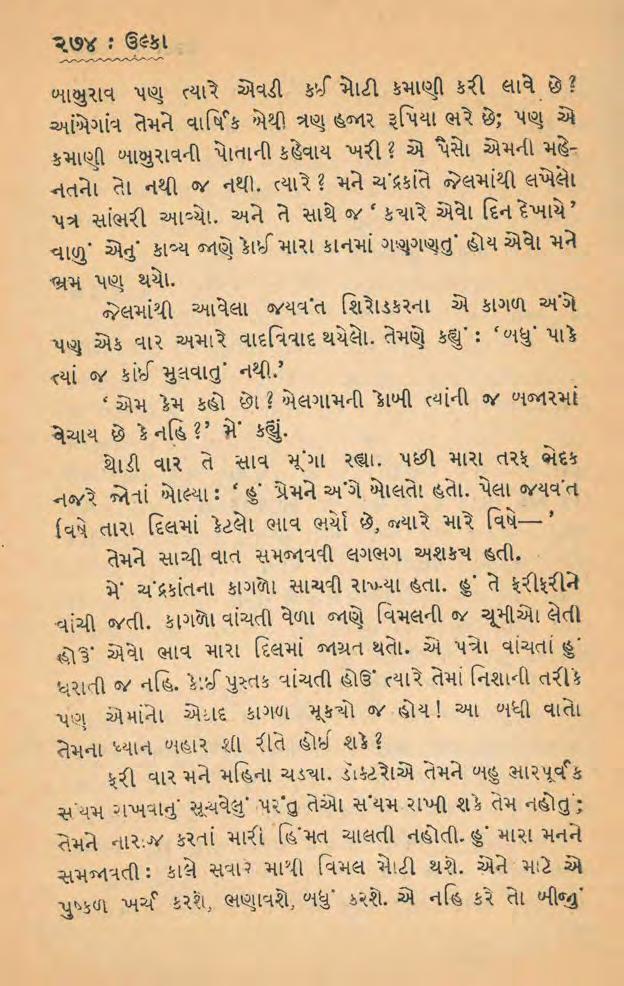 ૨૭૪ : ઉલ્કા
બાબુરાવ પણ ત્યારે એવડી કઈ મોટી કમાણી કરી લાવે છે?
આંબેગાંવ તેમને વાર્ષિક બેથી ત્રણ હજાર રૂપિયા ભરે છે; પણ એ
કમાણી બાબુરાવની પોતાની કહેવાય ખરી? એ પૈસો એમની મહે-
નતનો તો નથી જ નથી. ત્યારે? મને ચંદ્રકાંતે જેલમાંથી લખેલો
પત્ર સાંભરી આવ્યો. અને તે સાથે જ ‘ કયારે એવો દિન દેખાયે’
વાળું એનું કાવ્ય જાણે કોઈ મારા કાનમાં ગણગણતું હોય એવો મને
ભ્રમ પણ થયો.
જેલમાંથી આવેલા જયવંત શિરોડકરના એ કાગળ અંગે
પણ એક વાર અમારે વાદવિવાદ થયેલો. તેમણે કહ્યું : ‘બધું પાકે
ત્યાં જ કાંઈ મુલવાતું નથી.’
‘ એમ કેમ કહો છો? બેલગામની કોબી ત્યાંની જ બજારમાં
વેચાય છે કે નહિ?’ મેં કહ્યું.
થોડી વાર તે સાવ મૂંગા રહ્યા. પછી મારા તરફ ભેદક
નજરે જોતાં બોલ્યા : ‘ હું પ્રેમને અંગે બોલતો હતો. પેલા જયવંત
વિષે તારા દિલમાં કેટલો ભાવ ભર્યો છે, જ્યારે મારે વિષે— ’
તેમને સાચી વાત સમજાવવી લગભગ અશકય હતી.
મેં ચંદ્રકાંતના કાગળો સાચવી રાખ્યા હતા. હું તે ફરીફરીને
વાંચી જતી. કાગળો વાંચતી વેળા જાણે વિમલની જ ચૂમીઓ લેતી
હોઉં એવો ભાવ મારા દિલમાં જાગ્રત થતો. એ પત્રો વાંચતાં હું
ધરાતી જ નહિ. કોઈ પુસ્તક વાંચતી હોઉં ત્યારે તેમાં નિશાની તરીકે
પણ એમાંનો એદાદ કાગળ મૂકયો જ હોય! આ બધી વાતો
તેમના ધ્યાન બહાર શી રીતે હોઈ શકે?
ફરી વાર મને મહિના ચડયા. ડૉક્ટરોએ તેમને બહુ ભારપૂર્વક
સંયમ રાખવાનું સૂચવેલું પરંતુ તેઓ સંયમ રાખી શકે તેમ નહોતું;
તેમને નારાજ કરતાં મારી હિંમત ચાલતી નહોતી. હું મારા મનને
સમજાવતી : કાલે સવારે મારી વિમલ મોટી થશે. એને માટે એ
પુષ્કળ ખર્ચ કરશે, ભણાવશે, બધું કરશે. એ નહિ કરે તો બીજું